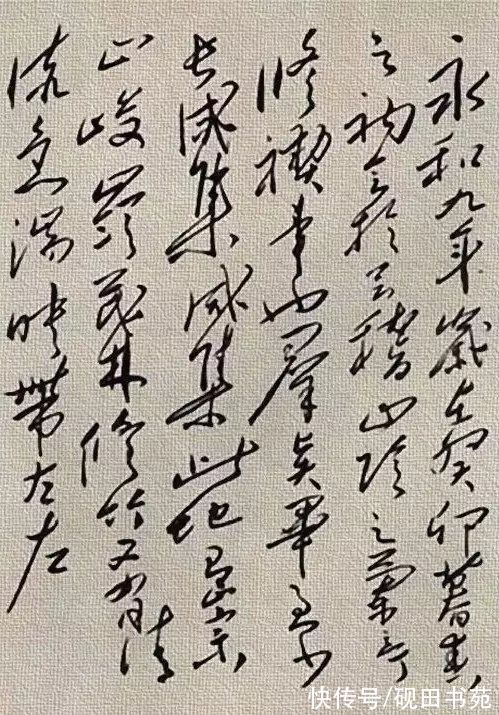 永和九年歲在癸卯暮春
之初會於會稽山陰之蘭亭
修禊事也羣賢畢至少
長咸集咸集此地有崇
山峻嶺茂林修竹又有清
流急湍映帶左左
快传号/砚田书苑